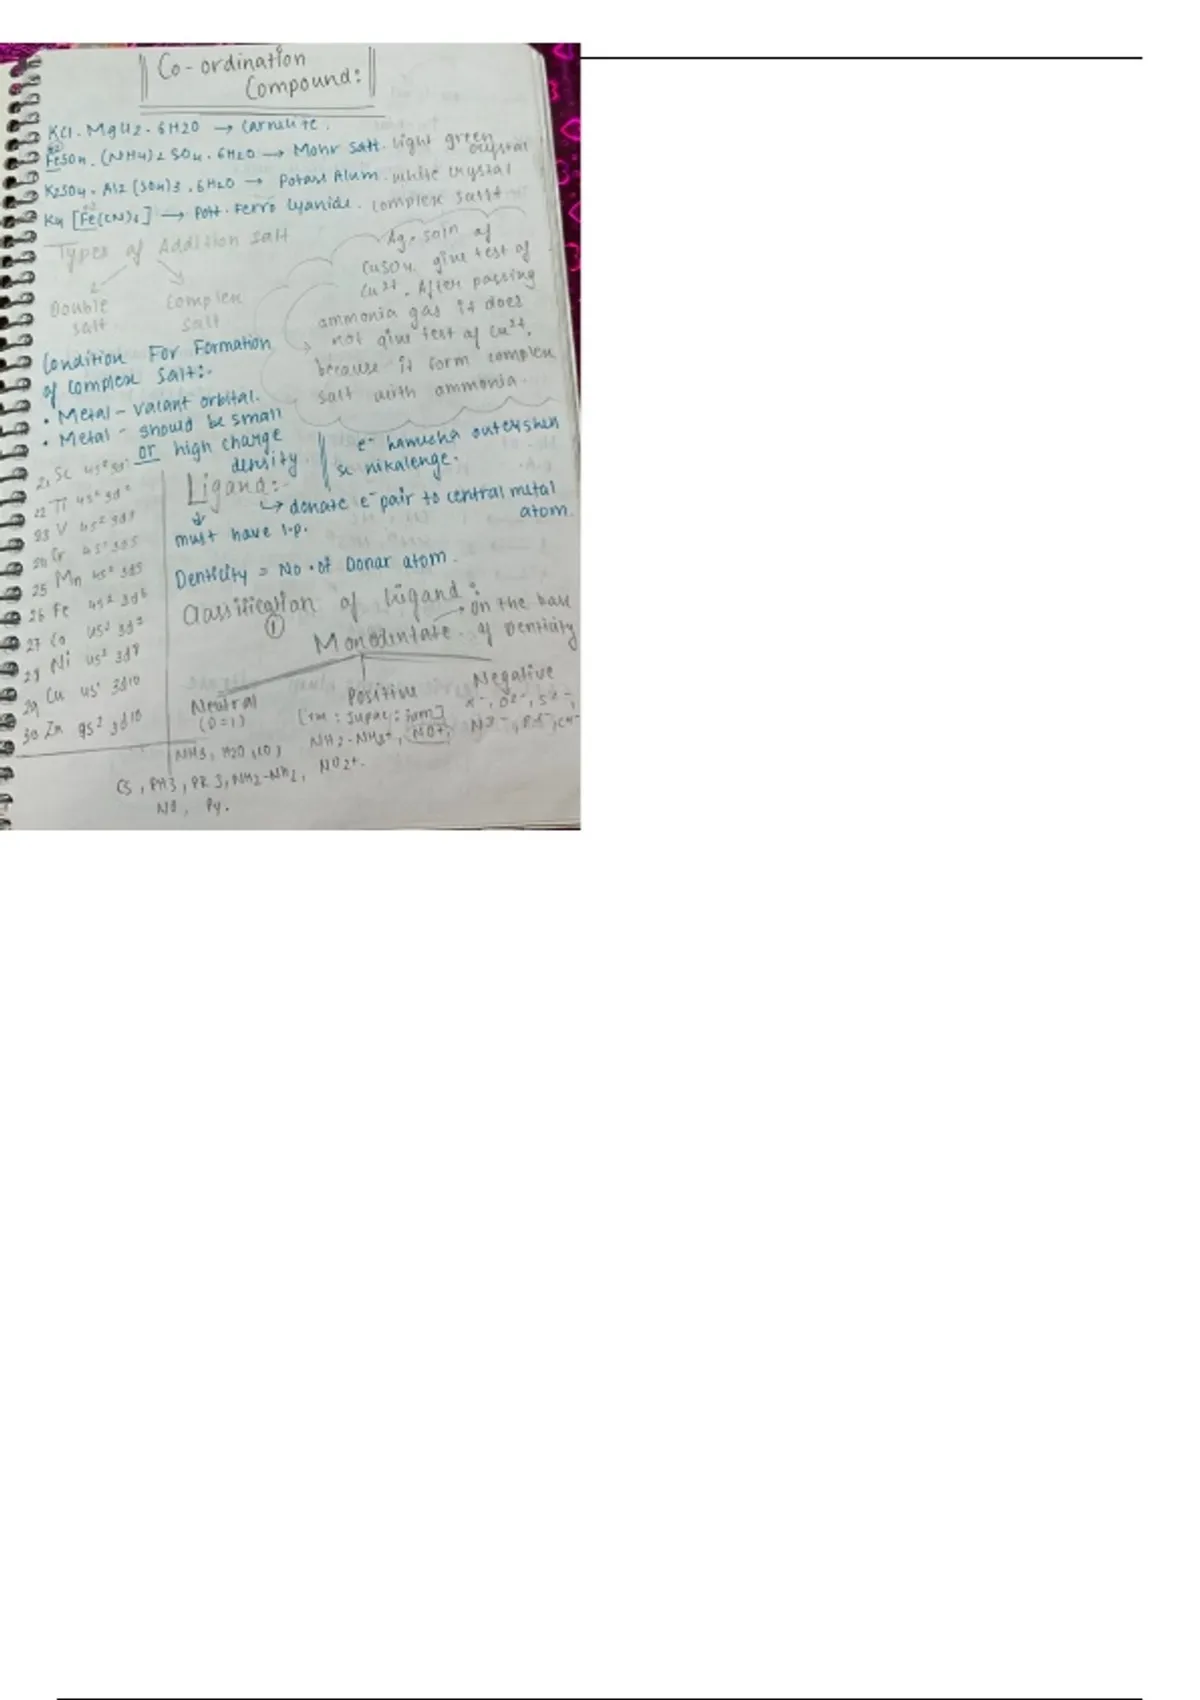 Co-ordination
Compound:
KCl. MgCl2. 6H2O → Carnelite.
+2
FeSO4. (NH4)2 SO4. 6H2O → Mohr salt. light green crystal
K2SO4. Al2 (SO4)3. 6H2O → Potass Alum. white crystal
K4 [Fe(CN)6] → Pott. Ferro Cyanide. complex salt
Types of Addition salt
Double salt
Complex salt
Aq. soln of
CuSO4 give test of
Cu2+. After passing
ammonia gas it does
not give test of Cu2+.
because it form complex
salt with ammonia.
Condition For Formation
of complex salt:-
• Metal - vacant orbital.
• Metal - should be small
or high charge
density.
e- hamesha outershell
se nikalenge.
21 Sc 4s2 3d1
22 Ti 4s2 3d2
23 V 4s2 3d3
24 Cr 4s1 3d5
25 Mn 4s2 3d5
26 Fe 4s2 3d6
27 Co 4s2 3d7
28 Ni 4s2 3d8
29 Cu 4s1 3d10
30 Zn 4s2 3d10
Ligand:-
→ donate e- pair to central metal
atom.
must have l.p.
Denticity = No. of Donar atom.
Classification of Ligand:
① → On the base
Monodintate. of Denticity
Neutral
(D=1)
NH3, H2O, CO,
CS, PH3, PR3, NH2-NH2,
NO, Py.
Positive
[ium]
NH2-NH3+, NO+,
NO2+.
Negative
X-, O2-, S2-,